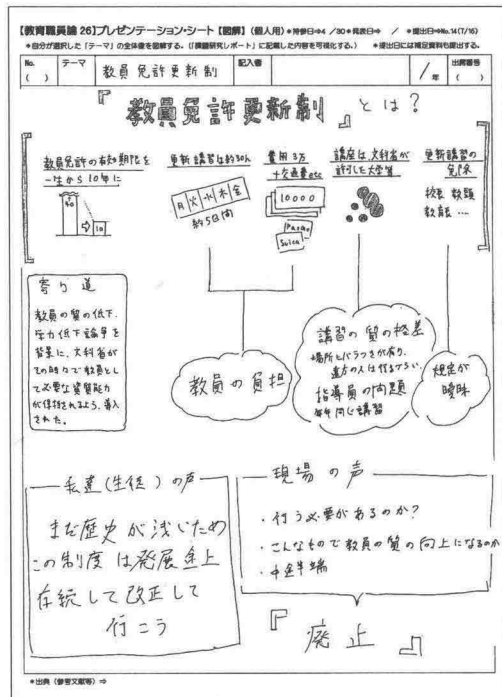 【教育職員論 26】プレゼンテーション・シート【図解】(個人用) *持参日⇒4 /30 *発表日⇒ / *提出日⇒No.14(7/16)
*自分が選択した「テーマ」の全体像を図解する。(「課題研究レポート」に記載した内容を可視化する。) *提出日には補足資料も提出する。
No. ( ) テーマ 教員免許更新制 記入者 / 年 出席番号 ( )
『教員免許更新制』とは?
教員免許の有効期限を
一生から10年に
更新講習は約30h
月 火 水 木 金
約5日間
費用3万
+交通費etc
10000
Pasmo
Suica
講座は文科省が
許可した大学等
更新講習の
免除
校長 教頭
教育長 ....
寄り道
教員の質の低下、
学力低下論争を
背景に、文科省が
その時々で教員とし
て必要な資質能力
が保持されるよう、導入
された。
教員の負担
講習の質の格差
場所にバラつきが有り、
遠方の人は行きづらい
指導員の問題
毎年同じ講習
規定が
曖昧
私達(生徒)の声
まだ歴史が浅いため
この制度は発展途上
存続して改正して
行こう
現場の声
・行う必要があるのか?
・こんなもので教員の質の向上になるのか
・中途半端
『廃止』
*出典(参考文献等)⇒